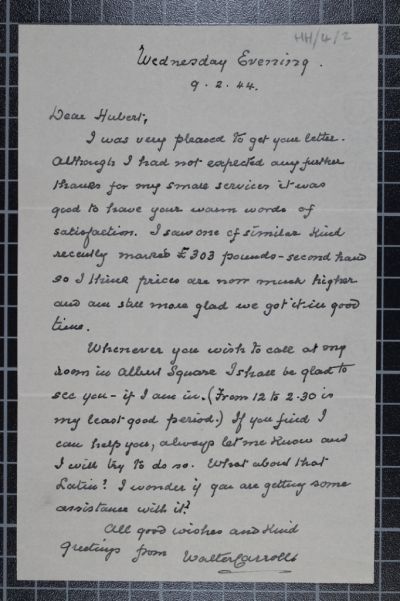 HH/4/2
Wednesday Evening.
9.2.44.
Dear Hubert,
I was very pleased to get your letter.
Although I had not expected any further
thanks for my small services it was
good to have your warm words of
satisfaction. I saw one of similar kind
recently marked £303 pounds - second hand
so I think prices are now much higher
and am still more glad we got it in good
time.
Whenever you wish to call at my
room in Albert Square I shall be glad to
see you - if I am in. (From 12 to 2.30 is
my least good period.) If you find I
can help you, always let me know and
I will try to do so. What about that
Latin? I wonder if you are getting some
assistance with it?
All good wishes and kind
greetings from Walter Carroll